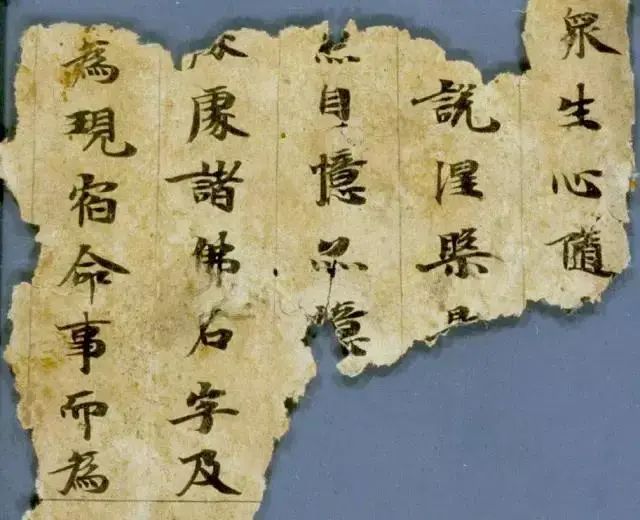 衆生心隨
說涅槃
自憶憶
處諸佛名字及
為現宿命事而為